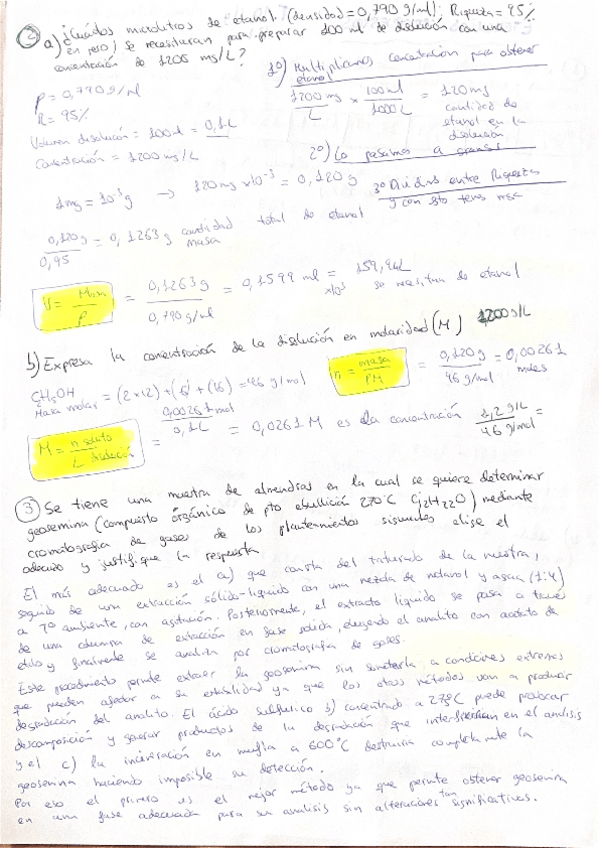 ② a) ¿Cuántos microlitros de etanol (densidad = 0,790 g/ml; Riqueza = 95%
en peso) se necesitaran para preparar 100 ml de disolución con una
concentración de 1200 mg/L?
1º) Multiplicamos concentración para obtener
etanol
ρ = 0,790 g/ml
R = 95%
Volumen disolución = 100 ml = 0,1L
Concentración = 1200 mg/L
1200 mg/L × 100 ml/1000 L = 120 mg
cantidad de
etanol en la
disolución
2º) Lo pasamos a gramos
1mg = 10⁻³g → 120 mg × 10⁻³ = 0,120 g
3º Dividimos entre Riqueza
y con esto tenemos
0,120 g / 0,95 = 0,1263 g cantidad masa total de etanol
V = Masa/ρ = 0,1263 g / 0,790 g/ml = 0,1599 ml = ×10³ 159,9 µL
se necesitan de etanol
b) Expresa la concentración de la disolución en molaridad (M) 1200 g/L
CH₅OH
Masa molar = (2×12)+(6)+(16) = 46 g/mol
n = masa/PM = 0,120 g / 46 g/mol = 0,00261 moles
M = n soluto / L disolución = 0,00261 mol / 0,1L = 0,0261 M es la concentración
1,2 g/L / 46 g/mol =
③ Se tiene una muestra de almendras en la cual se quiere determinar
geosmina (compuesto órgánico de pto ebullición 270°C C₁₂H₂₂O) mediante
cromatografía de gases de los planteamientos siguientes elige el
adecuado y justifique la respuesta
El más adecuado es el a) que consta del triturado de la muestra,
seguido de una extracción sólido-líquido con una mezcla de metanol y agua (1:4)
a Tº ambiente, con agitación. Posteriormente, el extracto líquido se pasa a través
de una columna de extracción en fase solida, eluyendo el analito con acetato de
etilo y finalmente se analiza por cromatografía de gases.
Este procedimiento permite extraer la geosmina sin someterla a condiciones extremas
que pueden afectar a su estabilidad ya que los otros métodos van a producir
degradación del analito. El ácido sulfúrico b) concentrado a 275°C puede provocar
descomposición y generar productos de la degradación que interfieran en el análisis
y el c) la incineración en mufla a 600°C destruiría completamente la
geosmina haciendo imposible su detección.
Por eso el primero es el mejor método ya que permite obtener geosmina
en una fase adecuada para su análisis sin alteraciones tan significativas.